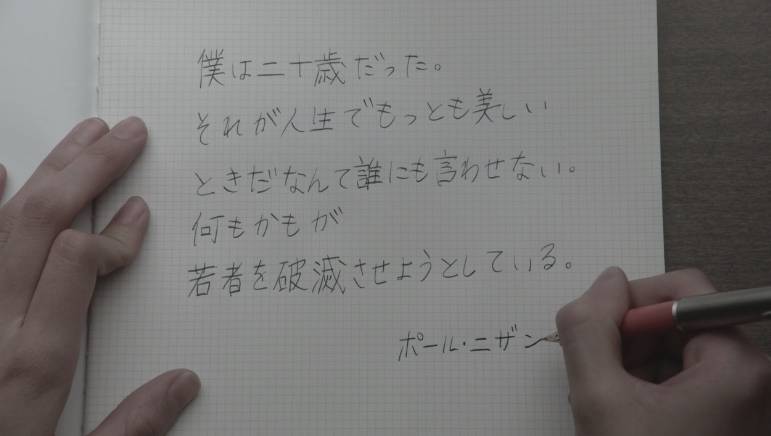 僕は二十歳だった。
それが人生でもっとも美しい
ときだなんて誰にも言わせない。
何もかもが
若者を破滅させようとしている。
ポール・ニザン